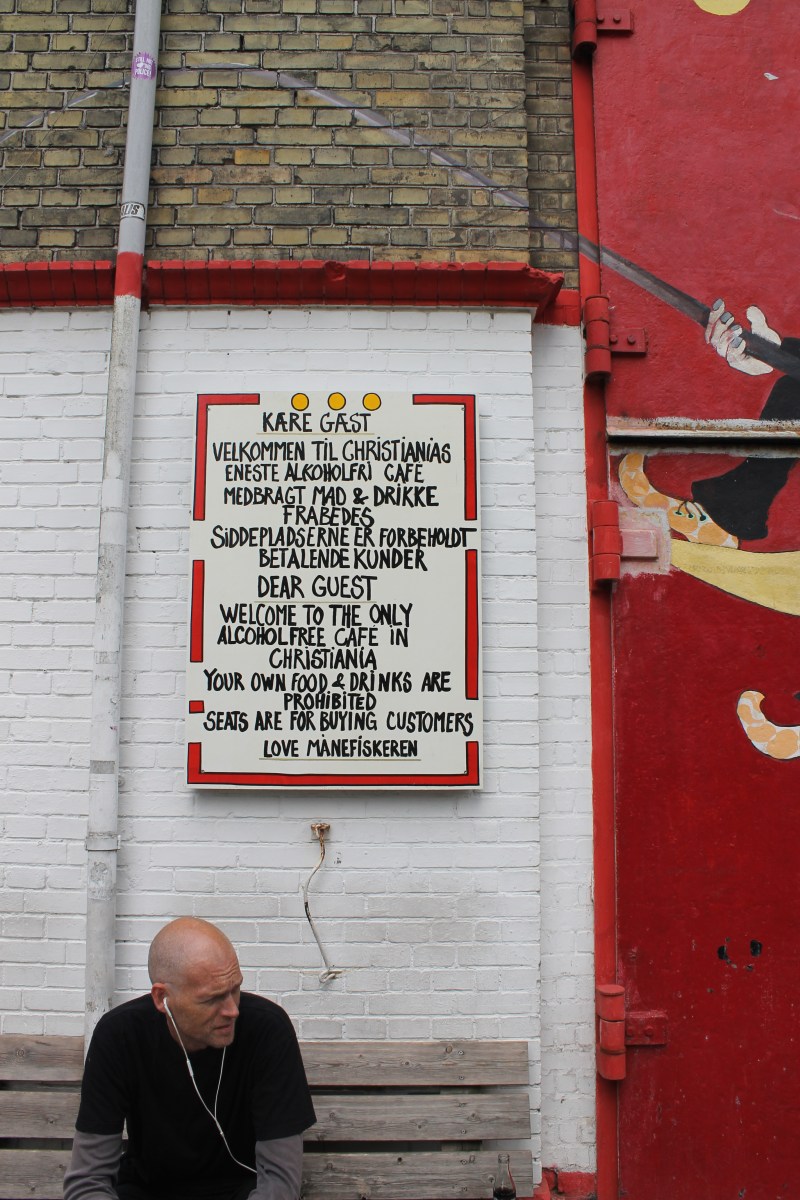 KÆRE GÆST
VELKOMMEN TIL CHRISTIANIAS
ENESTE ALKOHOLFRI CAFE
MEDBRAGT MAD & DRIKKE
FRABEDES
SIDDEPLADSERNE ER FORBEHOLDT
BETALENDE KUNDER
DEAR GUEST
WELCOME TO THE ONLY
ALCOHOLFREE CAFÉ IN
CHRISTIANIA
YOUR OWN FOOD & DRINKS ARE
PROHIBITED
SEATS ARE FOR BUYING CUSTOMERS
LOVE MÅNEFISKEREN